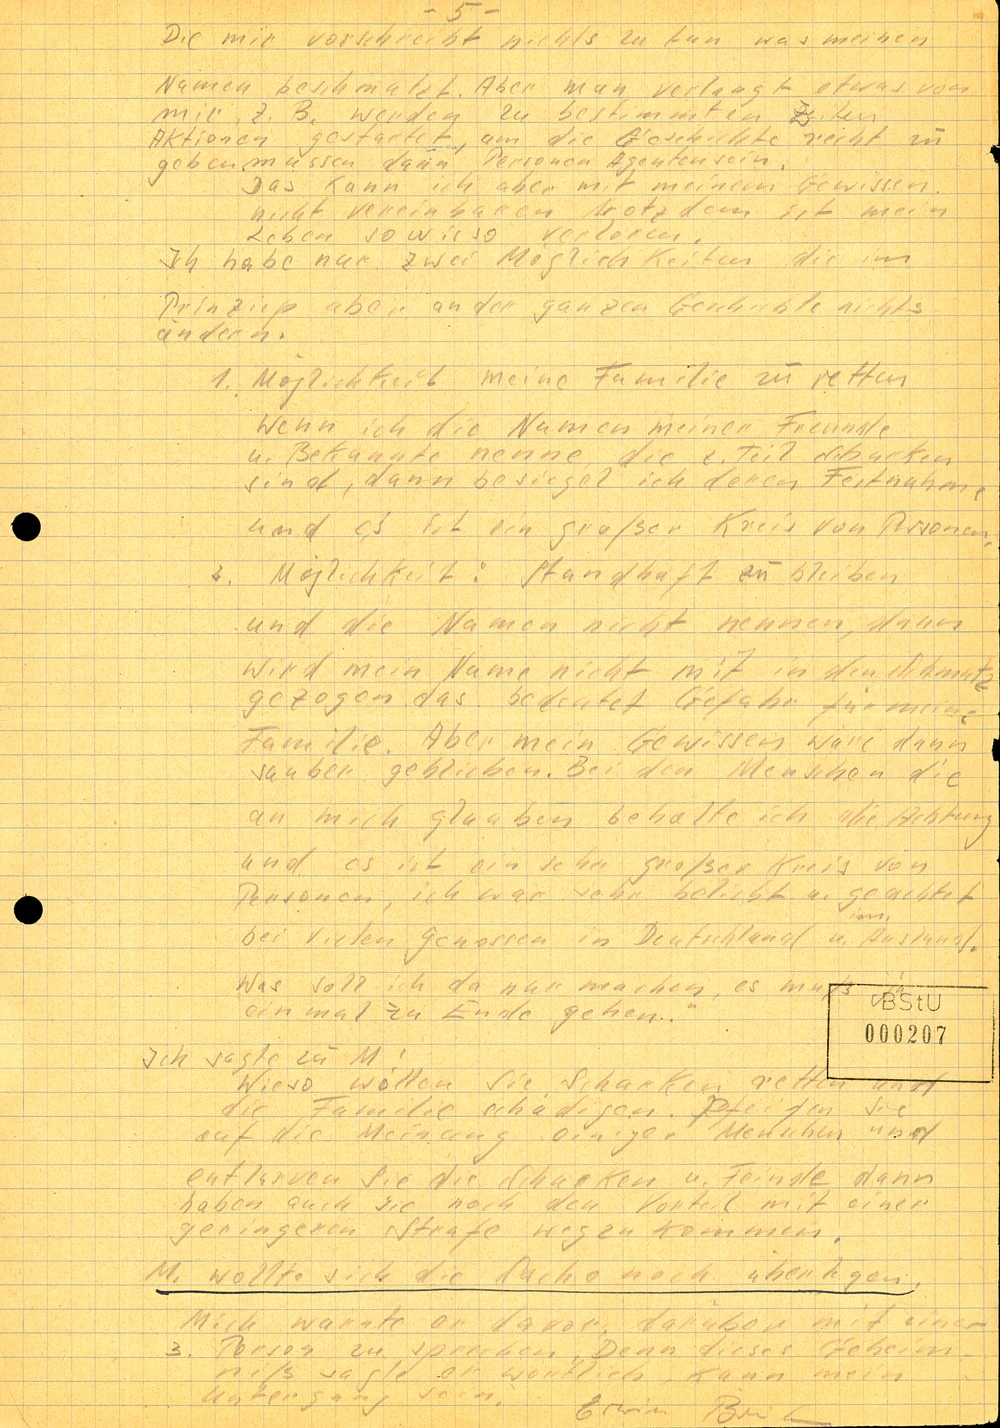 - 5 -
Die mir vorschreibt nichts zu tun was meinen
Namen beschmutzt. Aber man verlangt etwas von
mir, z. B. werden zu bestimmten Zeiten
Aktionen gestartet, um die Geschichte recht zu
geben müssen dann Personen Agenten sein.
Das kann ich aber mit meinem Gewissen
nicht vereinbaren trotzdem ist mein
Leben sowieso verloren.
Ich habe nur zwei Möglichkeiten die im
Prinziep aber an der ganzen Geschichte nichts
ändern.
1. Möglichkeit meine Familie zu retten
Wenn ich die Namen meiner Freunde
u. Bekannte nenne, die z. Teil Schurken
sind, dann besiegel ich deren Festnahme
und es ist ein großer Kreis von Personen.
2. Möglichkeit: Standhaft zu bleiben
und die Namen nicht nennen, dann
wird mein Name nicht mit in den Schmutz
gezogen das bedeutet Gefahr für meine
Familie. Aber mein Gewissen wäre dann
sauber geblieben. Bei den Menschen die
an mich glauben behalte ich die Achtung
und es ist ein sehr großer Kreis von
Personen, ich war sehr beliebt u. geachtet
bei vielen Genossen in Deutschland u. im Ausland.
Was soll ich da nur machen, es muß ja
einmal zu Ende gehen.."
BStU
000207
Ich sagte zu M!
Wieso wollen Sie Schurken retten und
die Familie schädigen. Pfeifen Sie
auf die Meinung einiger Menschen und
entlarven Sie die Schurken u. Feinde dann
haben auch sie noch den Vorteil mit einer
geringeren Strafe wegzukommen.
M. wollte sich die Sache noch überlegen.
Mich warnte er davor, darüber mit einer
3. Person zu sprechen. Denn dieses Geheim-
niß sagte er wörtlich, kann mein
Untergang sein.
Erwin